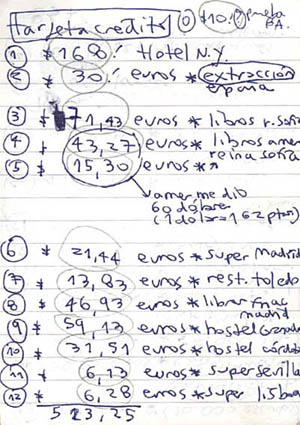 Tarjeta credito ⓪ $10.
P.A.
① * 168! Hotel N.Y.
② * 30! euros * extracción
españa
③ * 71,43 euros * libros r. sofía
④ * 43,27 euros * libros amer
reina sofía
⑤ * 15,30 euros * "
amer. me dio
60 dolares
(1 dolar = 162 ptas)
⑥ * 21,44 euros * super Madrid
⑦ * 13,83 euros * rest. toledo
⑧ * 46,93 euros * libros fnac
madrid
⑨ * 59,13 euros * hostel Granada
⑩ * 31,51 euros * hostel córdoba
⑪ * 6,13 euros * super sevilla
⑫ * 6,28 euros * super lisboa
513,25